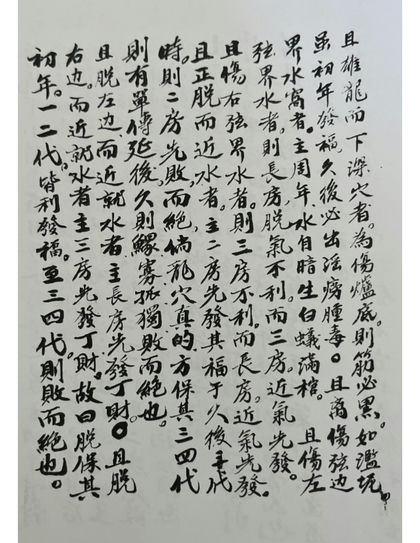 且雄龍而下深穴者。為傷爐底。則筋必黑。如濫坑
虽初年發福。久後必出瘋癆腫毒。且离傷弦边
界水窩者。主周年水自暗生白蟻滿棺。且傷左
弦界水者。則長房脫氣不利。而三房近氣先發。
且傷右弦界水者。則三房不利。而長房近氣先發。
且正脫而近水者。主二房先發其福于久後
時。則二房先敗。而絕倘龍穴真的方保其三四代
則有單傳延後。久則鰥寡孤獨敗而絕也。
且脫左边而近就水者主長房先發丁財。且脫
右边。而近就水者主三房先發丁財。故曰脫保其
初年。一二代。皆利發福。至三四代則敗而絕也。